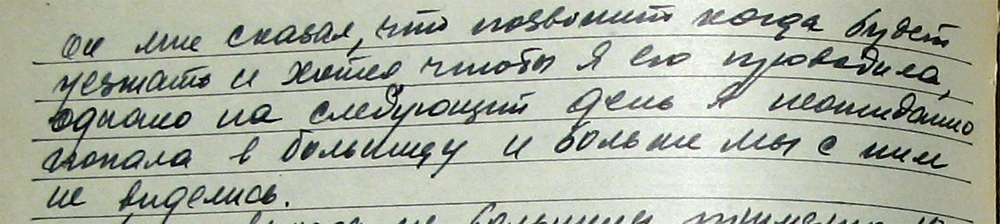 Он мне сказал, что позвонит когда будет
уезжать и хотел чтобы я его проводила,
однако на следующий день я неожиданно
попала в больницу и больше мы с ним
не виделись.